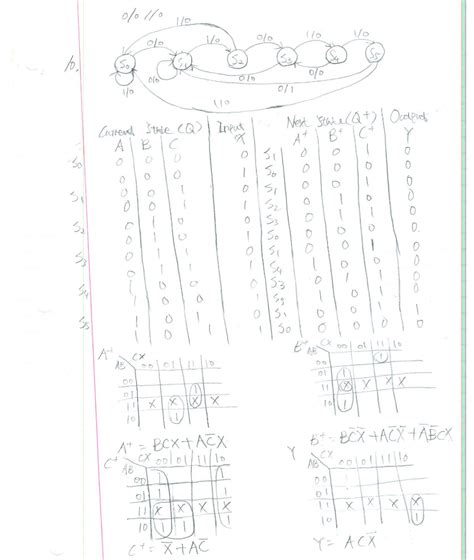 0/0 1/0
1/0
10. S0 0/0 S1 1/0 S2 0/0 S3 1/0 S4 1/0 S5
1/0 0/0 0/0 0/0
0/1
1/0
Current State (Q) Input Next State (Q+) Output
A B C X A+ B+ C+ Y
S0 0 0 0 0 S1 0 0 1 0
0 0 0 1 S0 0 0 0 0
S1 0 0 1 0 S1 0 0 1 0
0 0 1 1 S2 0 1 0 0
S2 0 1 0 0 S3 0 1 1 0
0 1 0 1 S0 0 0 0 0
S3 0 1 1 0 S1 0 0 1 0
0 1 1 1 S4 1 0 0 0
S4 1 0 0 0 S3 0 1 1 0
1 0 0 1 S5 1 0 1 0
S5 1 0 1 0 S1 0 0 1 1
1 0 1 1 S0 0 0 0 0
A+ CX 00 01 11 10
AB
00
01 1
11 X X X X
10 1
A+ = BCX + AC̅X
B+ CX 00 01 11 10
AB
00 1
01 1
11 X X X X
10 1
B+ = BC̅X̅ + AC̅X̅ + A̅B̅CX
C+ CX 00 01 11 10
AB
00 1 1
01 1 1
11 X X X X
10 1 1 1
C+ = X̅ + AC̅
Y CX 00 01 11 10
AB
00
01
11 X X X X
10 1
Y = ACX̅